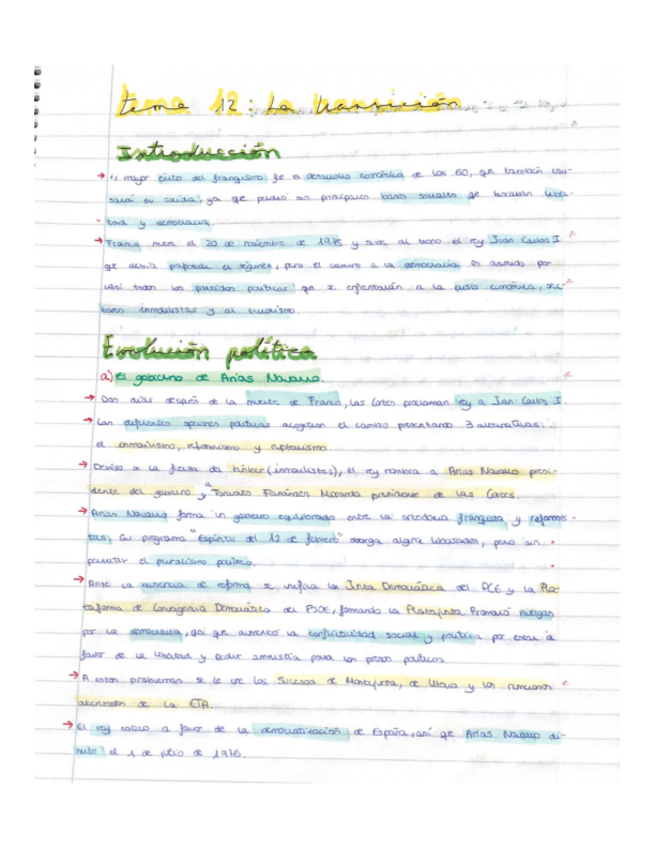 tema 12: La transición
Introducción
→ El mayor éxito del franquismo fue el desarrollo económico de los 60, que también cau-
sará su caída, ya que perdió sus principales bases sociales que buscaban liber-
tad y democracia.
→ Franco muere el 20 de noviembre de 1975 y sube al trono el rey Juan Carlos I
que el régimen, pero el camino a la democracia es asumido por
casi todos los partidos políticos que se enfrentarán a la crisis económica, sec-
tores inmovilistas y al terrorismo.
Evolución política
a) El gobierno de Arias Navarro.
→ Dos días después de la muerte de Franco, las Cortes proclaman rey a Juan Carlos I.
→ Las diferentes opciones políticas acogieron el cambio presentando 3 alternativas:
el inmovilismo, reformismo y rupturismo.
→ Debido a la fuerza del búnker (inmovilistas), el rey nombra a Arias Navarro presi-
dente del gobierno y a Torcuato Fernández Miranda presidente de las Cortes.
→ Arias Navarro forma un gobierno equilibrado entre la ortodoxia franquista y reformis-
tas. Su programa "Espíritu del 12 de febrero" otorga alguna libertades, pero sin
permitir el pluralismo político.
→ Ante la ausencia de reforma se unifica la Junta Democrática del PCE y la Pla-
taforma de Convergencia Democrática del PSOE, formando la Platajunta. Promovió huelgas
por la democracia, así que aumentó la conflictividad social y política por estar a
favor de la libertad y pedir amnistía para los presos políticos.
→ A estos problemas se le une los Sucesos de Montejurra, de Vitoria y los numerosos
atentados de la ETA.
→ El rey estuvo a favor de la democratización de España, así que Arias Navarro di-
mite el 1 de julio de 1976.